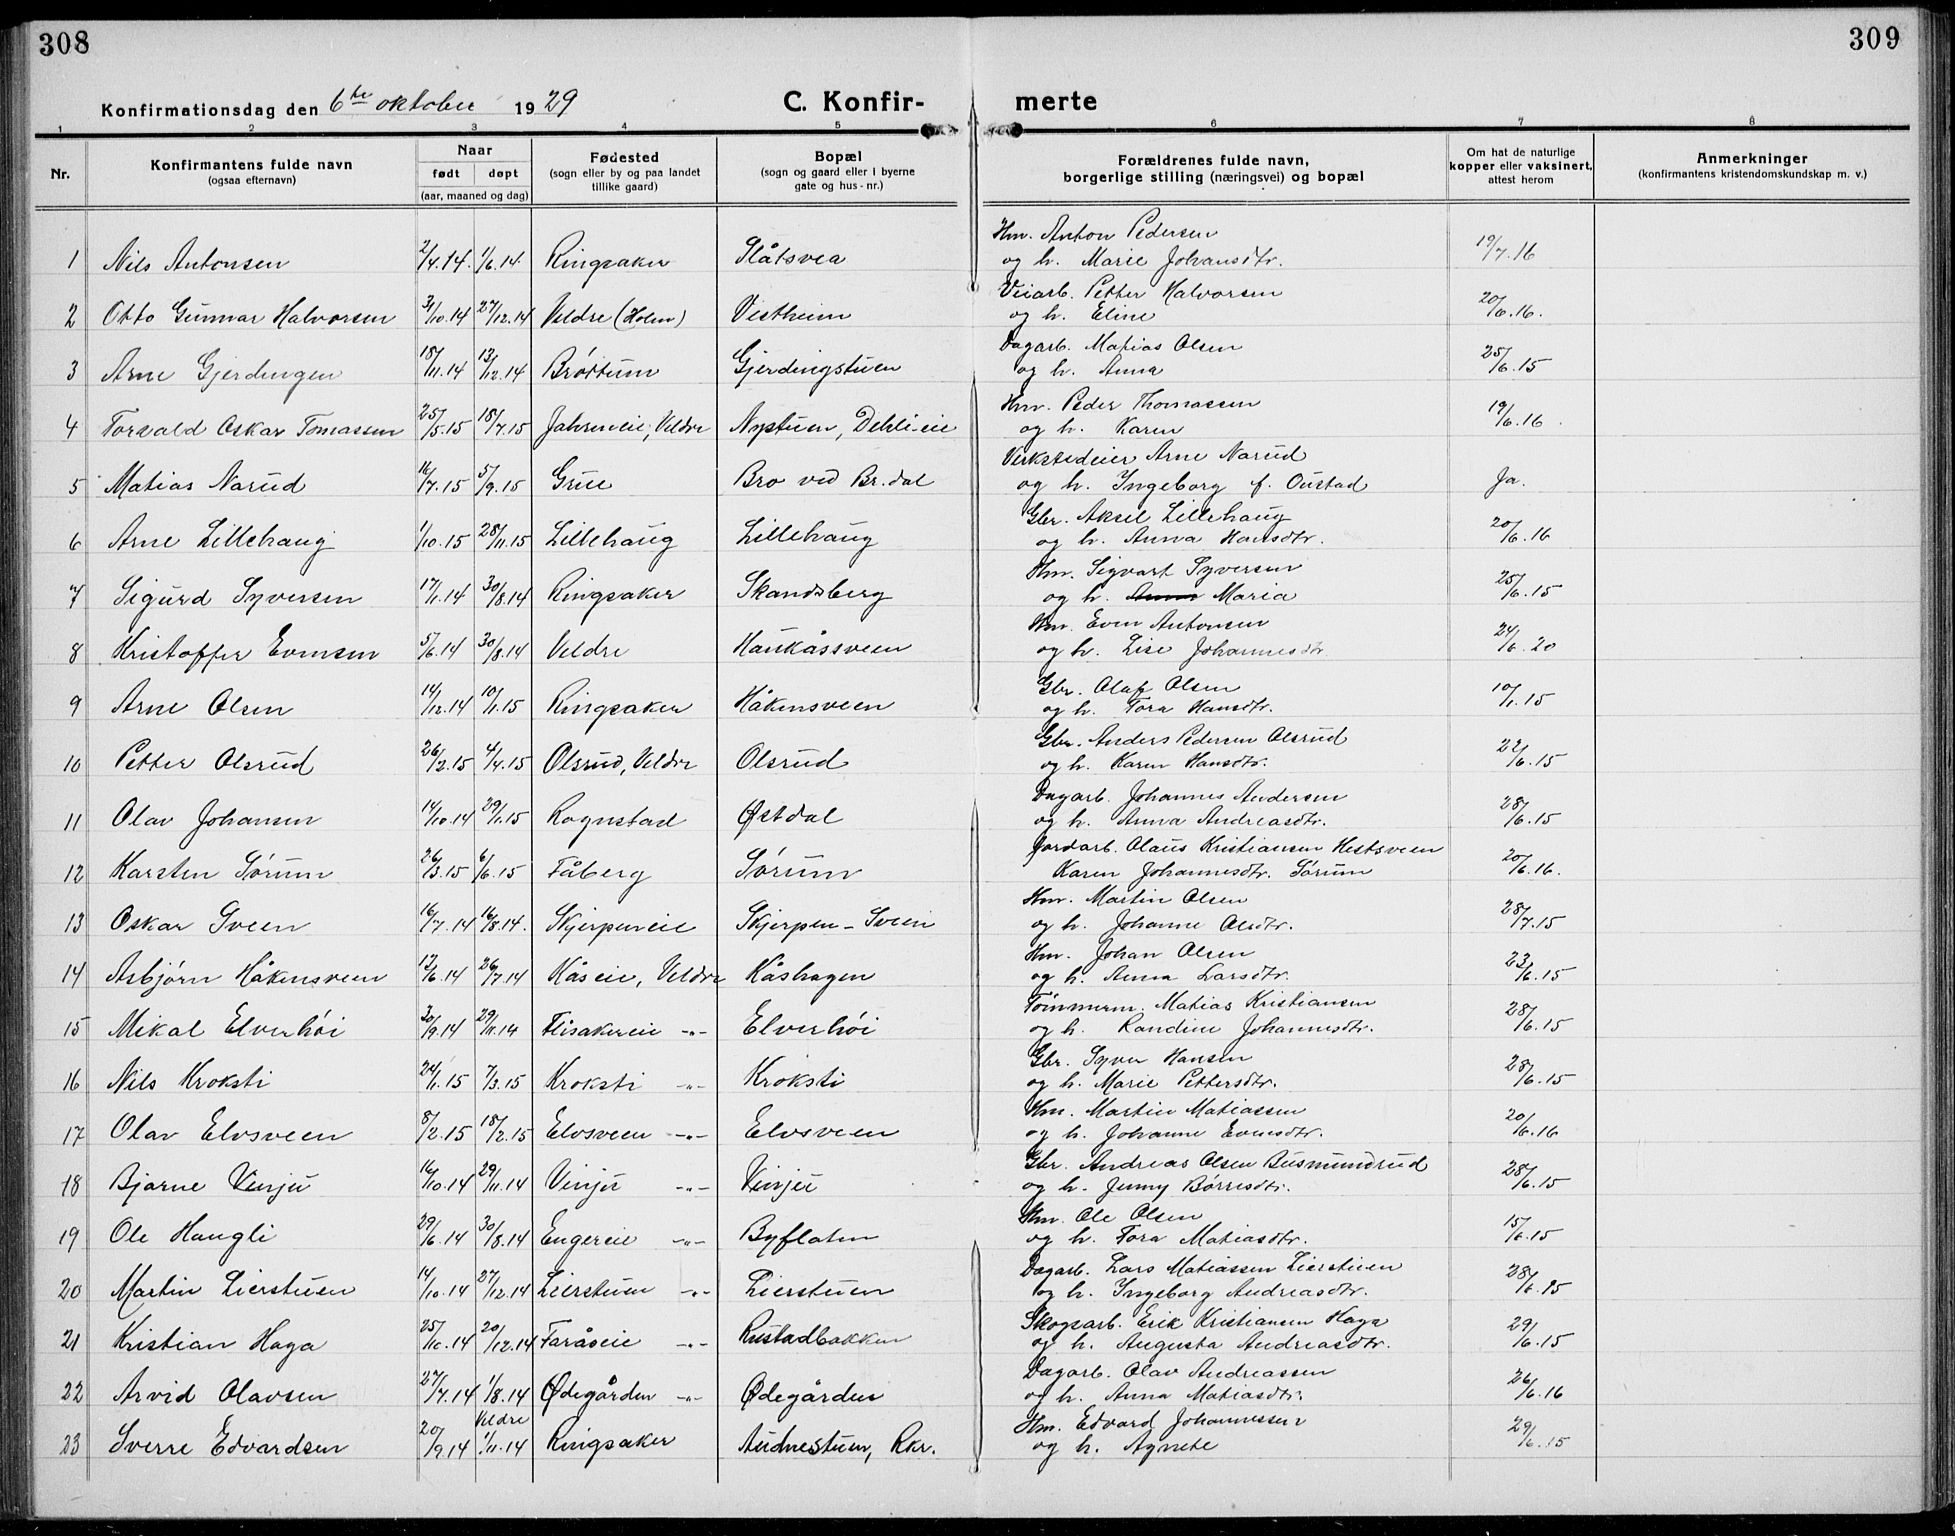 308
309
Konfirmationsdag den 6te oktober 1929
C. Konfir- merte
1 2 3 4 5 6 7 8
Nr.
Konfirmantens fulde navn
(ogsaa efternavn)
Naar
født døpt
(aar, maaned og dag)
Fødested
(sogn eller by og paa landet
tillike gaard)
Bopæl
(sogn og gaard eller i byerne
gate og hus-nr.)
Forældrenes fulde navn,
borgerlige stilling (næringsvei) og bopæl
Om hat de naturlige
kopper eller vaksinert,
attest herom
Anmerkninger
(konfirmantens kristendomskundskap m. v.)
Hm. Anton Pedersen
1 Nils Antonsen 2/4.14. 1/6.14. Ringsaker Slåtsvea og h. Marie Johansdtr. 19/7.16
Veiarb. Petter Halvorsen
2 Otto Gunnar Halvorsen 31/10.14 27/12.14 Veldre (Holm) Vestheim og h. Eline 20/6.16.
Dagarb. Matias Olsen
3 Arne Gjerdingen 18/11.14 13/12.14 Brøttum Gjerdingstuen og h. Anna 25/6.15
Hm. Peder Thomassen
4 Torvald Oskar Tomassen 25/5.15 18/7.15 Jahreneie, Veldre Nystuen, Dehli-eie og h. Karen 19/6.16.
Verkstedeier Arne Narud
5 Matias Narud 16/7.15 5/9.15 Grue Bro ved Br.dal og h. Ingeborg f. Oustad Ja.
Gbr. Aksel Lillehaug
6 Arne Lillehaug 1/10.15 28/11.15 Lillehaug Lillehaug og h. Anna Hansdtr. 20/6.16
Hm. Sigvart Syversen
7 Sigurd Syversen 17/1.14 30/8.14 Ringsaker Skandsberg og h. Anna Maria 25/6.15
Hm. Even Antonsen
8 Kristoffer Evensen 5/6.14 30/8.14 Veldre Haukåssveen og h. Lise Johannesdtr. 24/6.20
Gbr. Olaf Olsen
9 Arne Olsen 14/12.14 10/1.15 Ringsaker Håkensveen og h. Tora Hansdtr. 10/1.15
Gbr. Anders Pedersen Olsrud
10 Petter Olsrud 26/2.15 4/4.15 Olsrud, Veldre Olsrud og h. Karen Hansdtr. 22/6.15
Dagarb. Johannes Andersen
11 Olav Johansen 14/10.14 29/1.15 Rognstad Østdal og h. Anna Andreasdtr. 28/6.15
Jordarb. Olaus Kristiansen Hestsveen
12 Karsten Sørum 26/3.15 6/6.15 Fåberg Sørum Karen Johannesdtr. Sørum 20/6.16.
Hm. Martin Olsen
13 Oskar Sveen 16/7.14 16/8.14. Skjerpeneie Skjerpen-Sveen og h. Johanne Olsdtr. 28/7.15
Hm. Johan Olsen
14 Asbjørn Håkensveen 12/6.14 26/7.14 Kåseie, Veldre Kåshagen og h. Anna Larsdtr. 23/6.15
Tømmerm. Matias Kristiansen
15 Mikal Elverhøi 30/9.14 29/11.14 Flisakereie -"- Elverhøi og h. Randine Johannesdtr. 28/6.15
Gbr. Syver Hansen
16 Nils Kroksti 24/1.15 7/3.15 Kroksti -"- Kroksti og h. Marie Pettersdtr. 28/6.15
Hm. Martin Matiassen
17 Olav Elvsveen 8/2.15 18/2.15 Elvsveen -"- Elvsveen og h. Johanne Evensdtr. 20/6.16
Gbr. Andreas Olsen Busmundrud
18 Bjarne Vinju 16/10.14 29/11.14 Vinju -"- Vinju og h. Jenny Børresdtr. 28/6.15
Hm. Ole Olsen
19 Ole Haugli 29/6.14 30/8.14 Engereie -"- Byflaten og h. Tora Matiasdtr. 15/6.15
Dagarb. Lars Matiassen Lierstuen
20 Martin Lierstuen 14/10.14 27/12.14 Lierstuen -"- Lierstuen og h. Ingeborg Andreasdtr. 28/6.15
Skogsarb. Erik Kristiansen Haga
21 Kristian Haga 25/10.14 20/12.14 Faråseie -"- Rustadbakken og h. Augusta Andreasdtr. 29/6.15
Dagarb. Olav Andreassen
22 Arvid Olavsen 27/7.14 1/8.14 Ødegården -"- Ødegården og h. Anna Matiasdtr. 26/6.16
Veldre Hm. Edvard Johannessen
23 Sverre Edvardsen 20/9.14 1/11.14 Ringsaker Audnestuen, Rkr. og h. Agnete 29/6.15